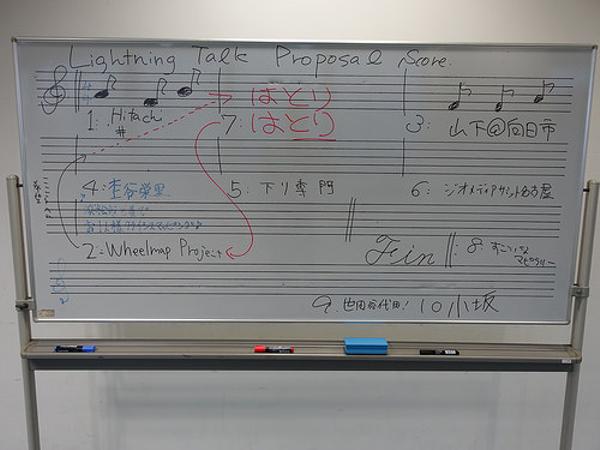 Lightning Talk Proposal Score.
はとり
1: Hitachi
#
7: はとり
3: 山下@向日市
4:
5: 下り専門
6: ジオメディアサミット名古屋
2: Wheelmap Project
Fin
8: すごいな
マッピラリー
9. 世田谷代田!
10 小坂